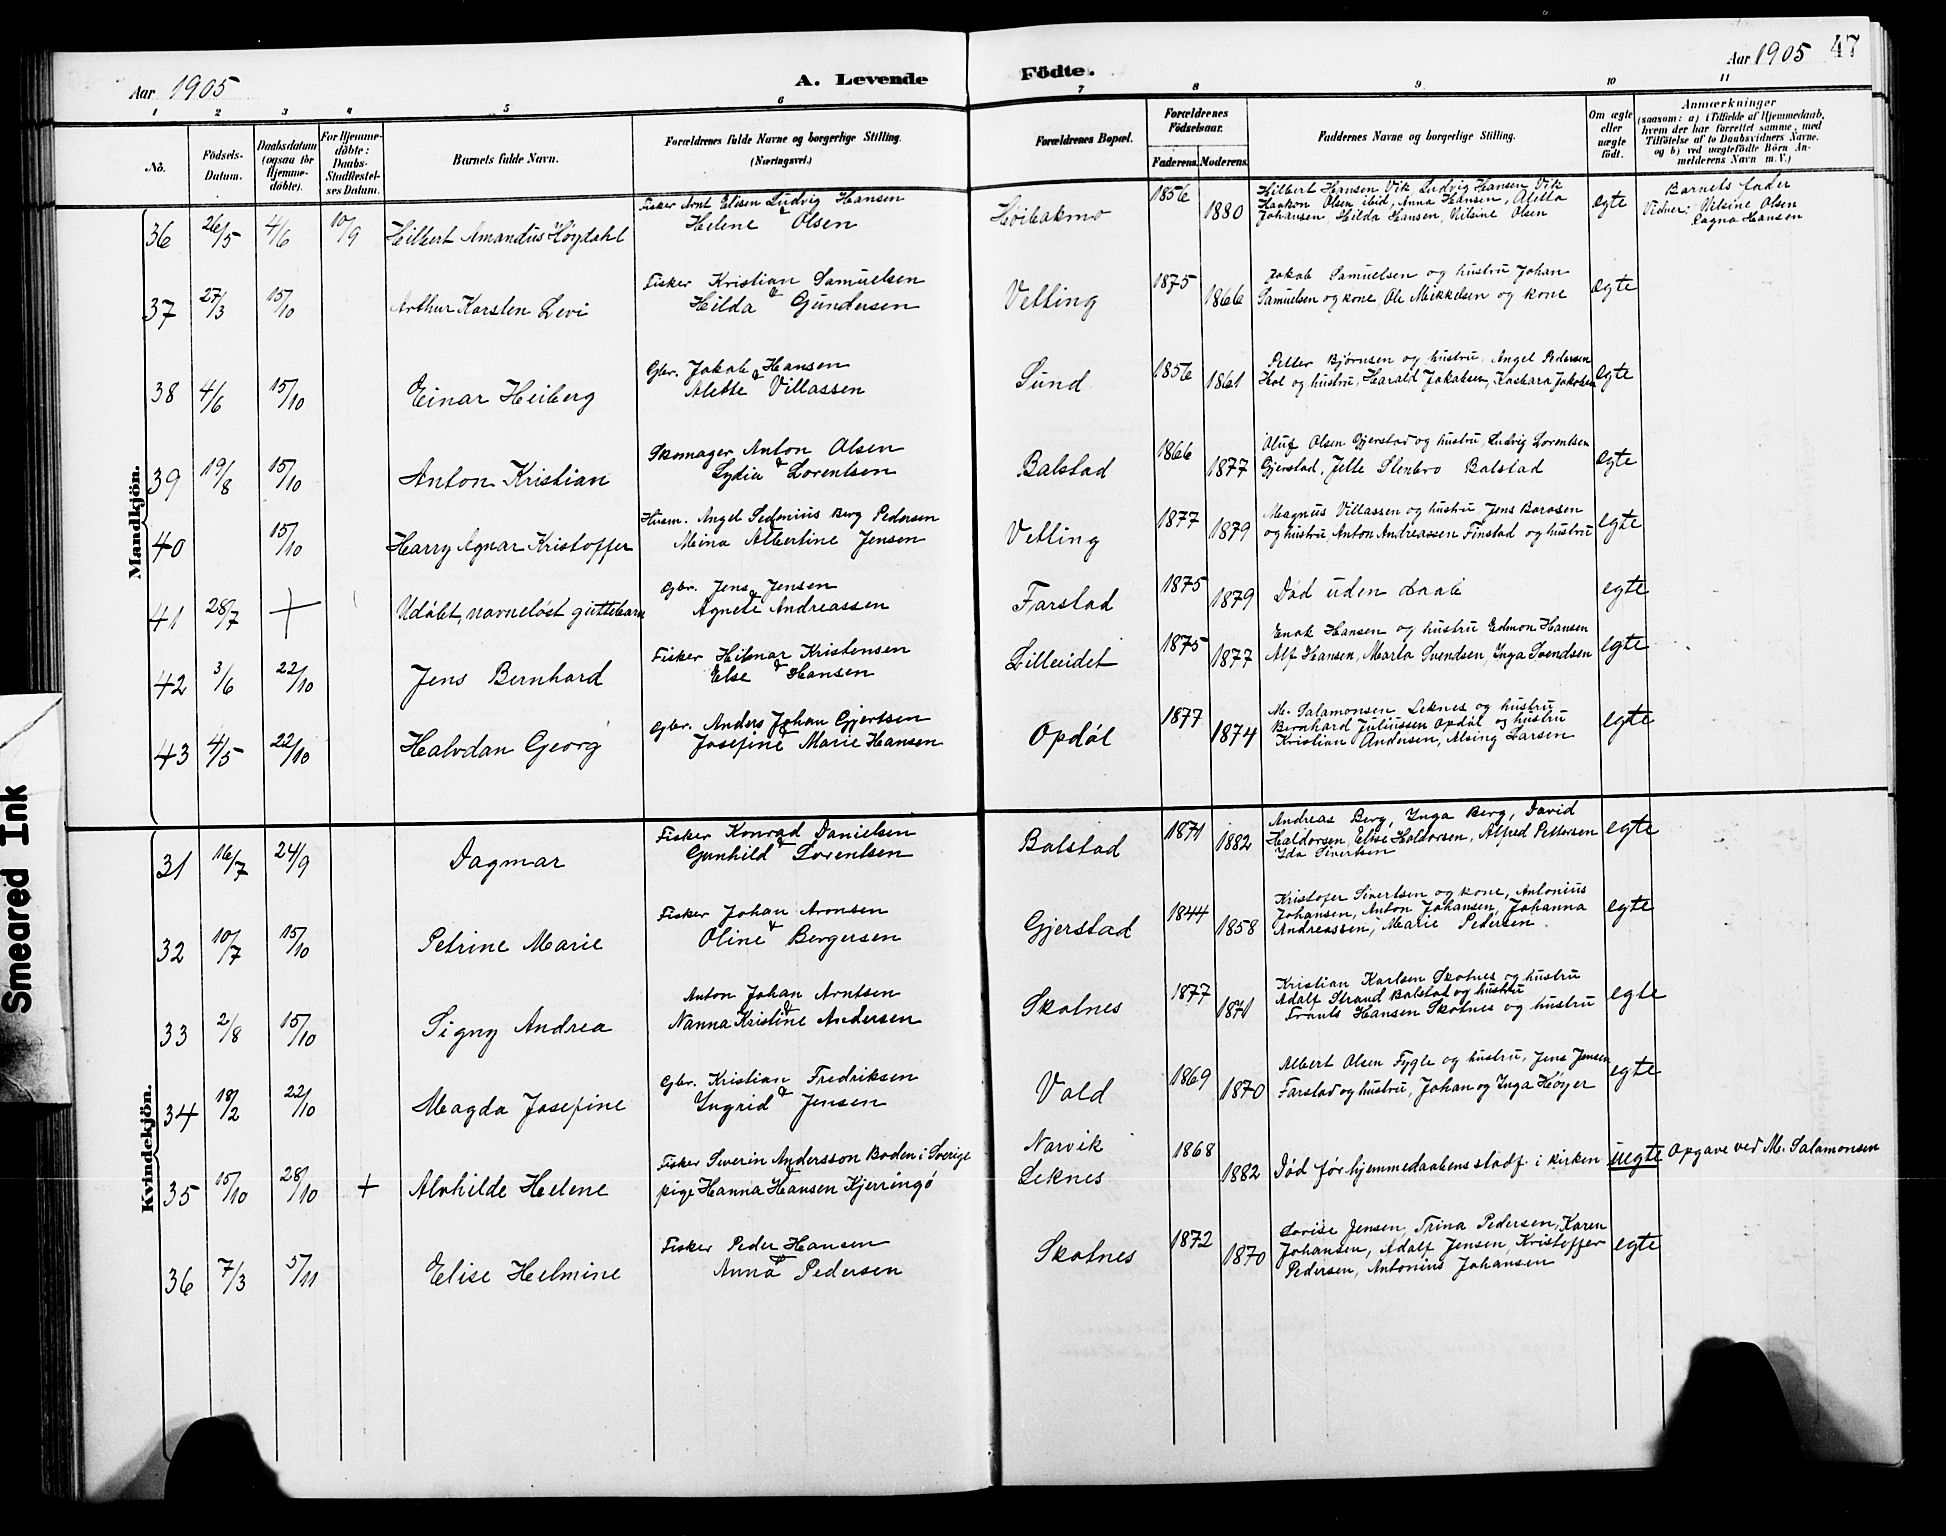 Aar 1905
A. Levende Födte.
Aar 1905 47
1 2 3 4 5 6 7 8 9 10 11
No.
Födsels-Datum.
Daabsdatum (ogsaa for Hjemme-döbte).
For Hjemme-döbte: Daabs-Stadfæstel-ses Datum.
Barnets fulde Navn.
Forældrenes fulde Navne og borgerlige Stilling.
(Næringsvei.)
Forældrenes Bopæl.
Forældrenes Födselsaar.
Faderens. Moderens.
Faddernes Navne og borgerlige Stilling.
Om ægte eller uægte födt.
Anmærkninger
(saasom: a) i Tilfælde af Hjemmedaab,
hvem der har forrettet samme, med
Tilföielse af to Daabsvidners Navne,
og b) ved uægtefödte Börn An-
melderens Navn m. V.)
Mandkjön.
36 26/5 4/6 10/9 Hilbert Amandus Høydahl
Fisker Arnt Elisen Ludvig Hansen
& Helene Olsen
Høibakmo 1856 1880
Hilbert Hansen Vik Ludvig Hansen Vik
Haakon Olsen ibid, Anna Hansen, Aletta
Johansen, Hilda Hansen, Nilsine Olsen
egte
Barnets fader
Vidner: Nilsine Olsen
Ragna Hansen
37 27/3 15/10 Arthur Karsten Levi
Fisker Kristian Samuelsen
& Hilda Gundersen
Vetting 1875 1866
Jakob Samuelsen og hustru Johan
Samuelsen og kone, Ole Mikkelsen og kone
egte
38 4/6 15/10 Einar Heiberg
Gbr. Jakob Hansen
& Alette Villassen
Sund 1856 1861
Petter Bjørnsen og hustru, Angel Pedersen
Hol og hustru, Harald Jakobsen, Kasbara Jakobsen
egte
39 19/8 15/10 Anton Kristian
Skomager Anton Olsen
& Lydia Lorentsen
Balstad 1866 1877
Oluf Olsen Gjerstad og hustru, Ludvig Lorentsen
Gjerstad, Jette Stenbro Balstad
egte
40 15/10 Harry Agnar Kristoffer
Husm. Angel Sedonius Berg Pedersen
Mina Albertine Jensen
Vetting 1877 1879
Magnus Villassen og hustru Jens Barosen
og hustru, Anton Andreassen Finstad og hustru
egte
41 28/7 + Udøbt, navneløst guttebarn
Gbr. Jens Jensen
& Agnete Andreassen
Farstad 1875 1879
Død uden daab
egte
42 3/6 22/10 Jens Bernhard
Fisker Hilmar Kristensen
& Else Hansen
Lilleeidet 1875 1877
Enok Hansen og hustru Edmon Hansen
Alf Hansen, Marta Svendsen, Inga Svendsen
egte
43 4/5 22/10 Halvdan Georg
Gbr. Anders Johan Gjertsen
& Josefine Marie Hansen
Opdøl 1877 1874
M. Salamonsen Leknes og hustru
Bernhard Juliussen Opdøl og hustru
Kristian Andersen, Alsing Larsen
egte
Kvindekjön.
31 16/7 24/9 Dagmar
Fisker Konrad Danielsen
& Gunhild Lorentsen
Balstad 1871 1882
Andreas Berg, Inga Berg, David
Haldorsen, Elise Haldorsen, Alfred Pettersen
Ida Sivertsen
egte
32 10/7 15/10 Petrine Marie
Fisker Johan Aronsen
& Oline Bergersen
Gjerstad 1844 1858
Kristofer Sivertsen og kone, Antonius
Johansen, Anton Johansen, Johanna
Andreassen, Marie Pedersen
egte
33 2/8 15/10 Signy Andrea
Anton Johan Arntsen
& Nanna Kristine Andersen
Skotnes 1877 1871
Kristian Karlsen Skotnes og hustru
Adolf Strand Balstad og hustru
Frants Hansen Skotnes og hustru
egte
34 18/2 22/10 Magda Josefine
Gbr. Kristian Fredriksen
& Ingrid Jensen
Vold 1869 1870
Albert Olsen Fygle og hustru, Jens Jensen
Farstad og hustru, Johan og Inga Høyer
egte
35 15/10 28/10 + Alvhilde Helene
Fisker Severin Andersson Boden i Sverige
& pige Hanna Hansen Kjerringø
Narvik
Leknes
1868 1882
Død før hjemmedaabens stadf. i kirken
uegte
Opgave ved M. Salamonsen
36 7/3 5/11 Elise Helmine
Fisker Peder Hansen
& Anna Pedersen
Skotnes 1872 1870
Lovise Jensen, Trina Pedersen, Karen
Johansen, Adolf Jensen, Kristoffer
Pedersen, Antonius Johansen
egte
Smeared Ink